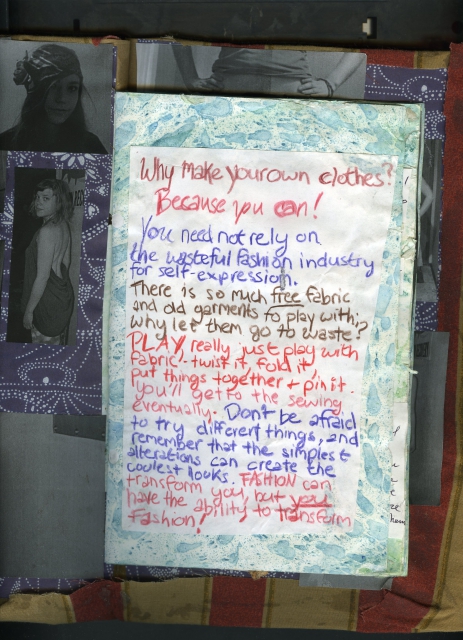 Why make your own clothes?
Because you can!
You need not rely on
the wasteful fashion industry
for self-expression.
There is so much free fabric
and old garments to play with;
why let them go to waste?
PLAY, really just play with
fabric - twist it, fold it,
put things together + pin it.
You'll get to the sewing
eventually. Don't be afraid
to try different things, and
remember that the simplest
alterations can create the
coolest looks. FASHION can
transform you, but you
have the ability to transform
fashion!